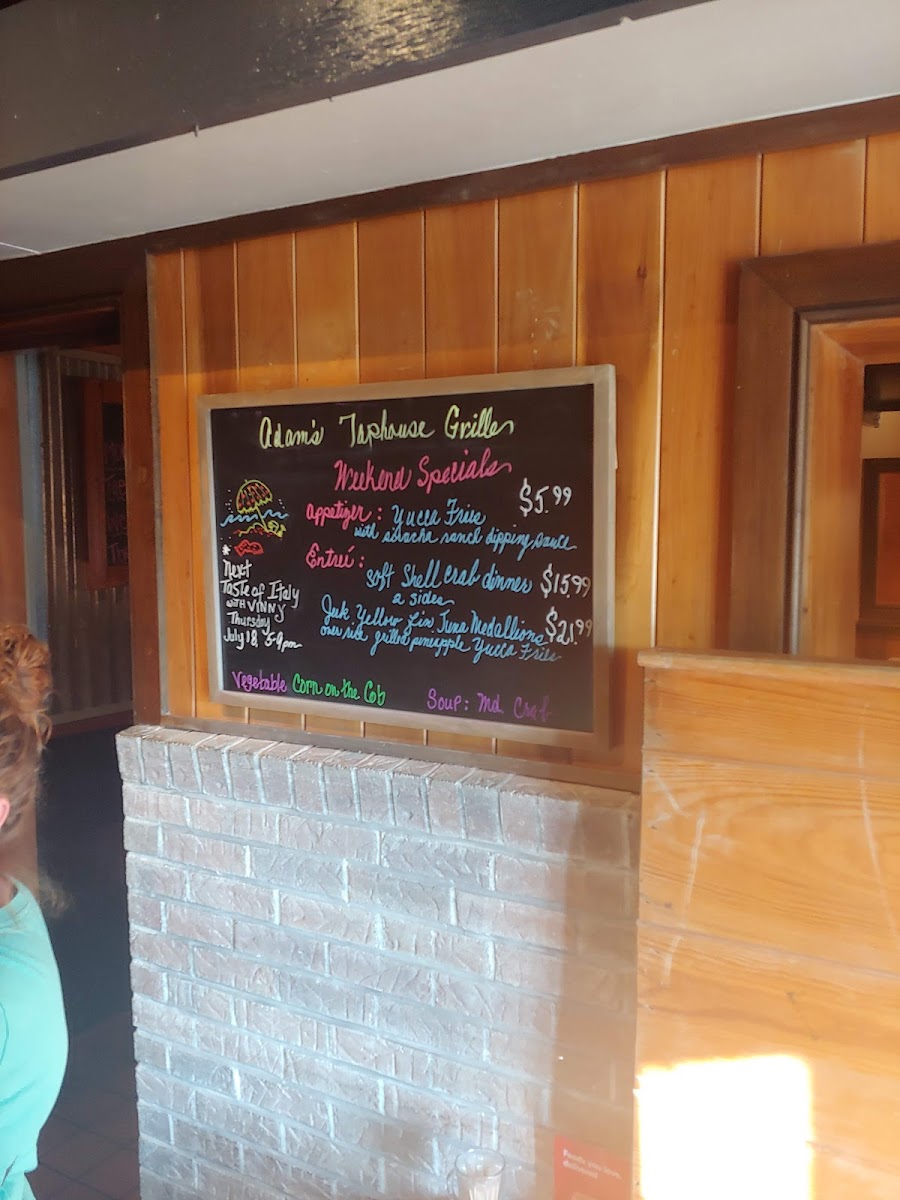 Adam's Taphouse Grille
Weekend Specials
Appetizer: Yucca Fries $5.99
with siracha ranch dipping sauce
Entreé:
Soft Shell Crab dinner $15.99
2 sides
Jerk Yellow Fin Tuna Medallions $21.99
over rice grilled pineapple Yucca Fries
*
Next
Taste of Italy
with VINNY
Thursday
July 18 5-9pm
Vegetable Corn on the Cob
Soup: Md. Crab
Foods you love,
delivered